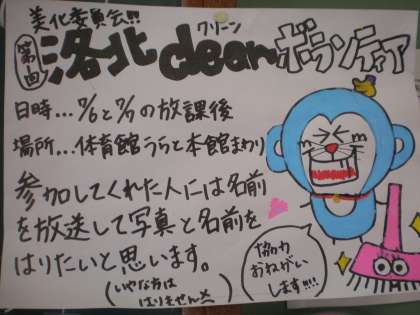 美化委員会!!!
第一回 洛北 clean クリーン ボランティア
日時…7/6と7/7の放課後
場所…体育館うらと本館まわり
参加してくれた人には名前
を放送して写真と名前を
はりたいと思います。
(いやな方は
はりません)
協力
おねがい
します!!!!